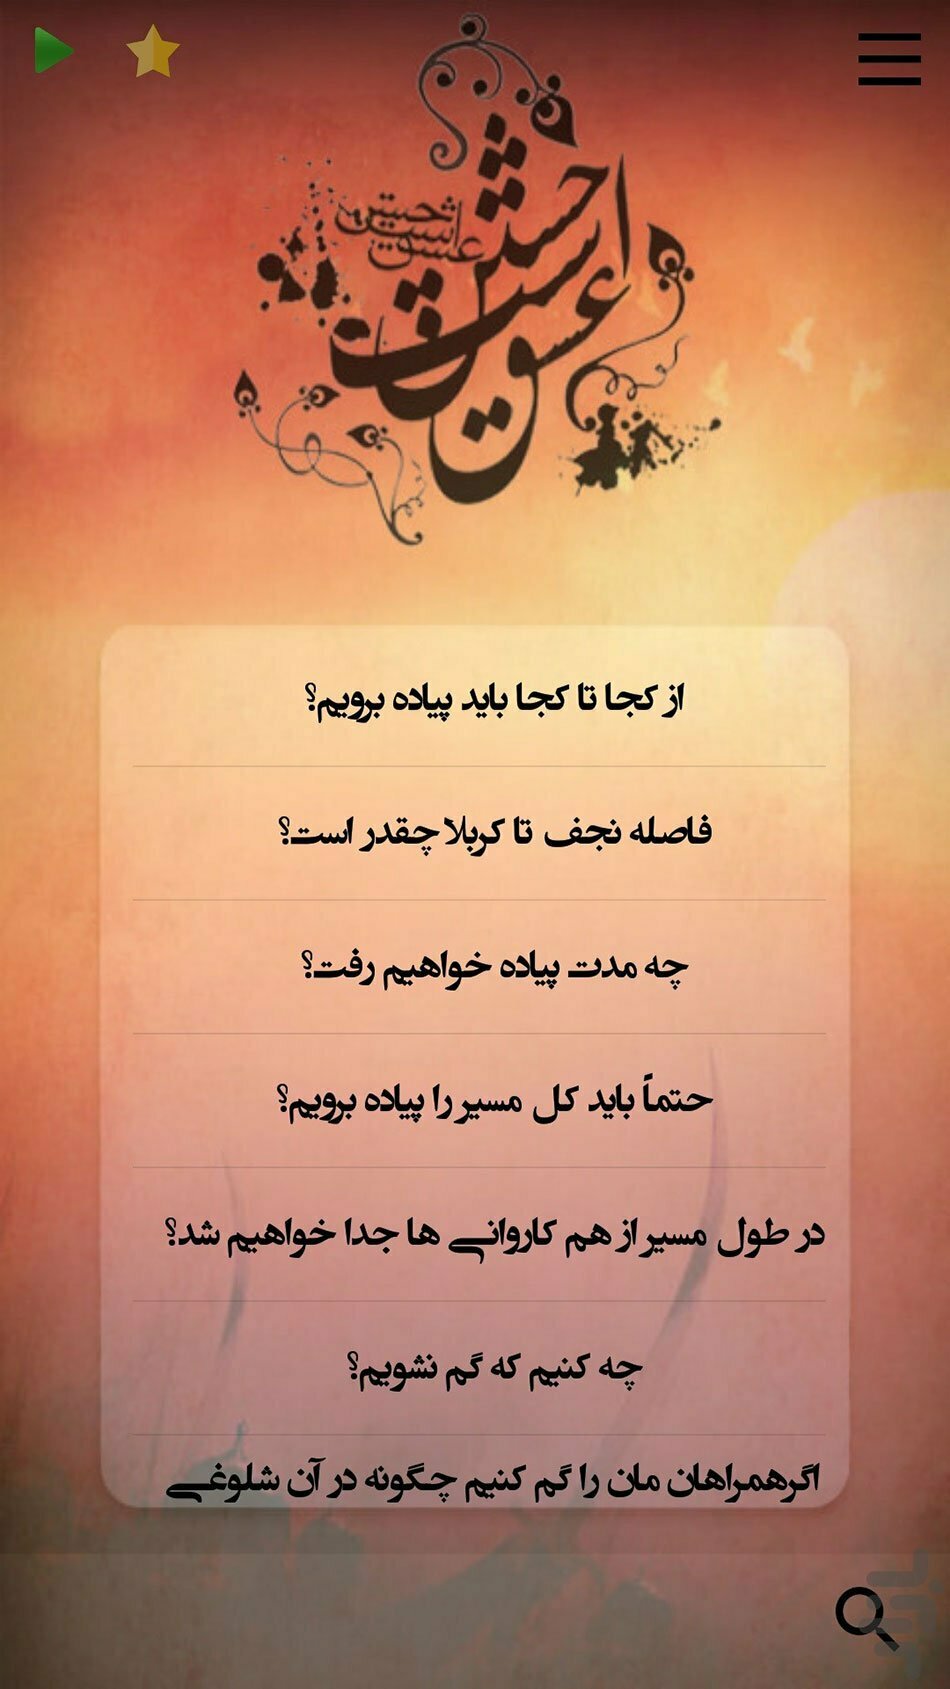 عشق است حسین
عشق است حسین
از کجا تا کجا باید پیاده برویم؟
فاصله نجف تا کربلا چقدر است؟
چه مدت پیاده خواهیم رفت؟
حتماً باید کل مسیر را پیاده برویم؟
در طول مسیر از هم کاروانی ها جدا خواهیم شد؟
چه کنیم که گم نشویم؟
اگرهمراهان مان را گم کنیم چگونه در آن شلوغی